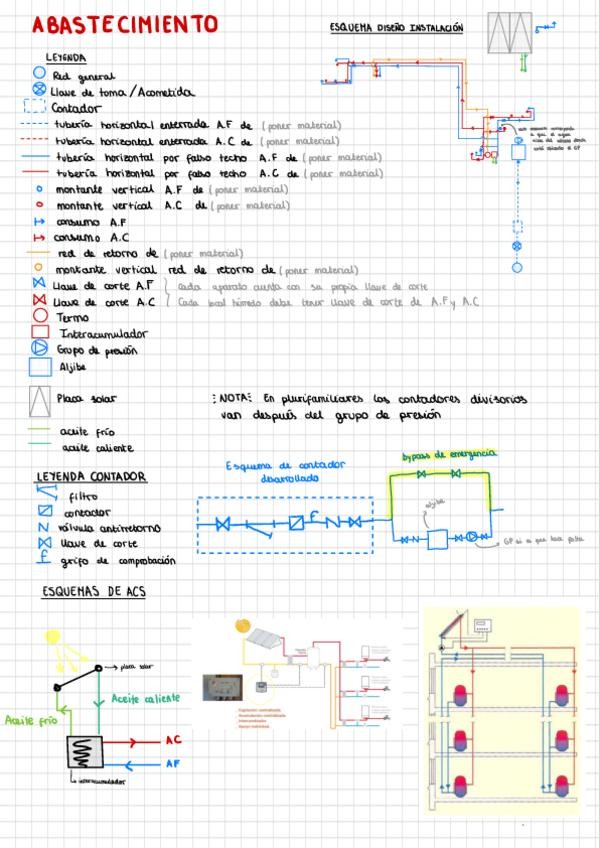 ABASTECIMIENTO
ESQUEMA DISEÑO INSTALACIÓN
LEYENDA
Red general
Llave de toma/Acometida
Contador
tubería horizontal enterrada A.F de (poner material)
tubería horizontal enterrada A.C de (poner material)
tubería horizontal por falso techo A.F de (poner material)
tubería horizontal por falso techo A.C de (poner material)
montante vertical A.F de (poner material)
montante vertical A.C de (poner material)
consumo A.F
consumo A.C
red de retorno de (poner material)
montante vertical red de retorno de (poner material)
Llave de corte A.F
Cada aparato cuenta con su propia llave de corte
Llave de corte A.C
Cada local húmedo debe tener llave de corte de A.F y A.C
Termo
Interacumulador
Grupo de presión
Aljibe
Placa solar
aceite frío
aceite caliente
NOTA: En plurifamiliares los contadores divisorios
van después del grupo de presión
LEYENDA CONTADOR
filtro
contador
válvula antirretorno
llave de corte
grifo de comprobación
Esquema de contador
desarrollado
bypass de emergencia
aljibe
GP si es que hace falta
ESQUEMAS DE ACS
placa solar
Aceite caliente
Aceite frío
AC
AF
interacumulador
Captación centralizada
Acumulación centralizada
Intercambiador
Apoyo individual